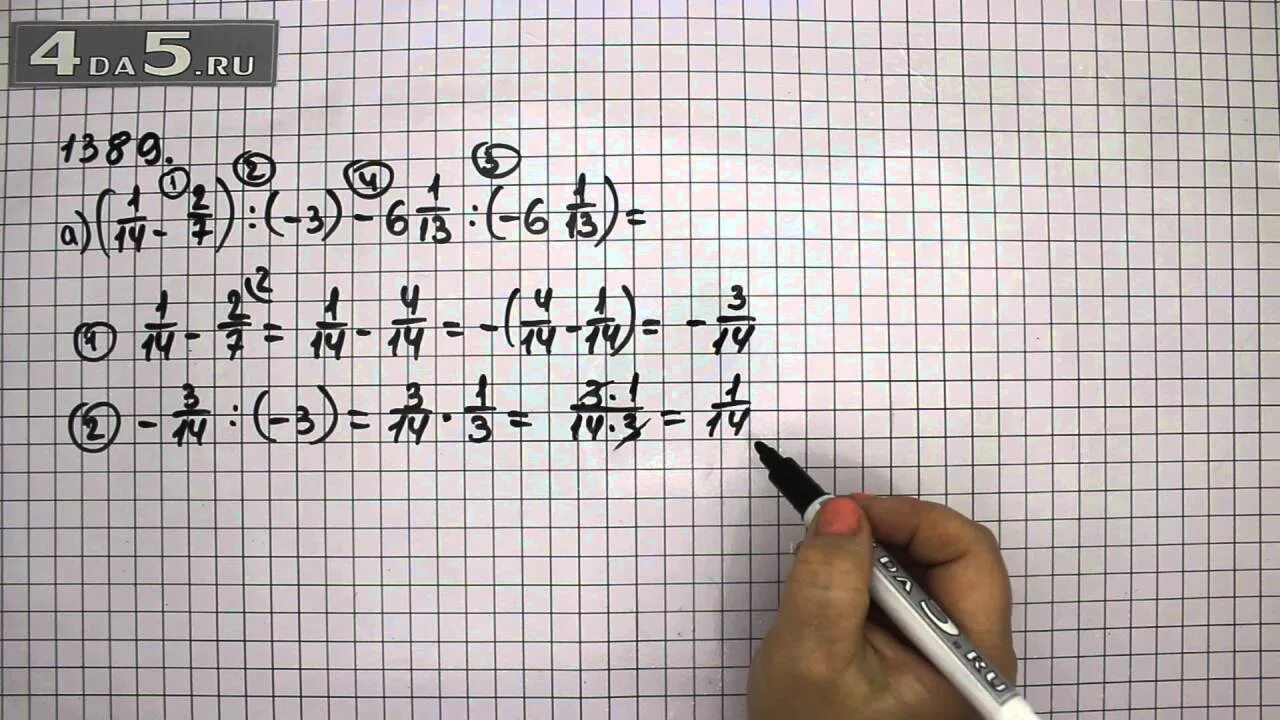 4DA5.RU
1389.
① ② ④ ③
а) (1/14 - 2/7) : (-3) - 6 1/13 : (-6 1/13) =
① 1/14 - 2/7 (2 = 1/14 - 4/14 = -(4/14 - 1/14) = - 3/14
② - 3/14 : (-3) = 3/14 · 1/3 = 3·1/14·3 = 1/14
DA5.RU